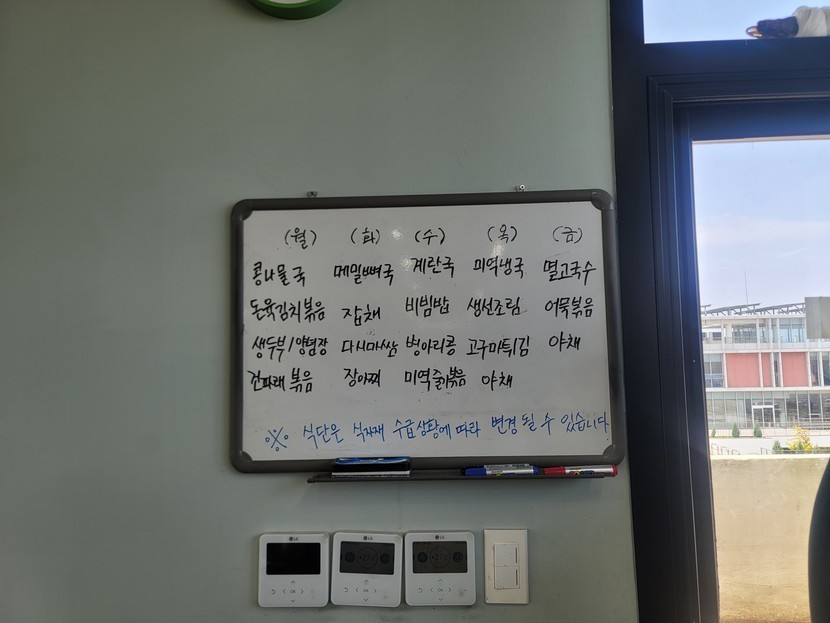 (월) (화) (수) (목) (금)
콩나물국 메밀뼈국 계란국 미역냉국 멸고국수
돈육김치볶음 잡채 비빔밥 생선조림 어묵볶음
생두부/양념장 다시마쌈 병아리콩 고구마튀김 야채
건파래볶음 장아찌 미역줄볶음 야채
※ 식단은 식자재 수급상황에 따라 변경 될 수 있습니다
LG LG LG